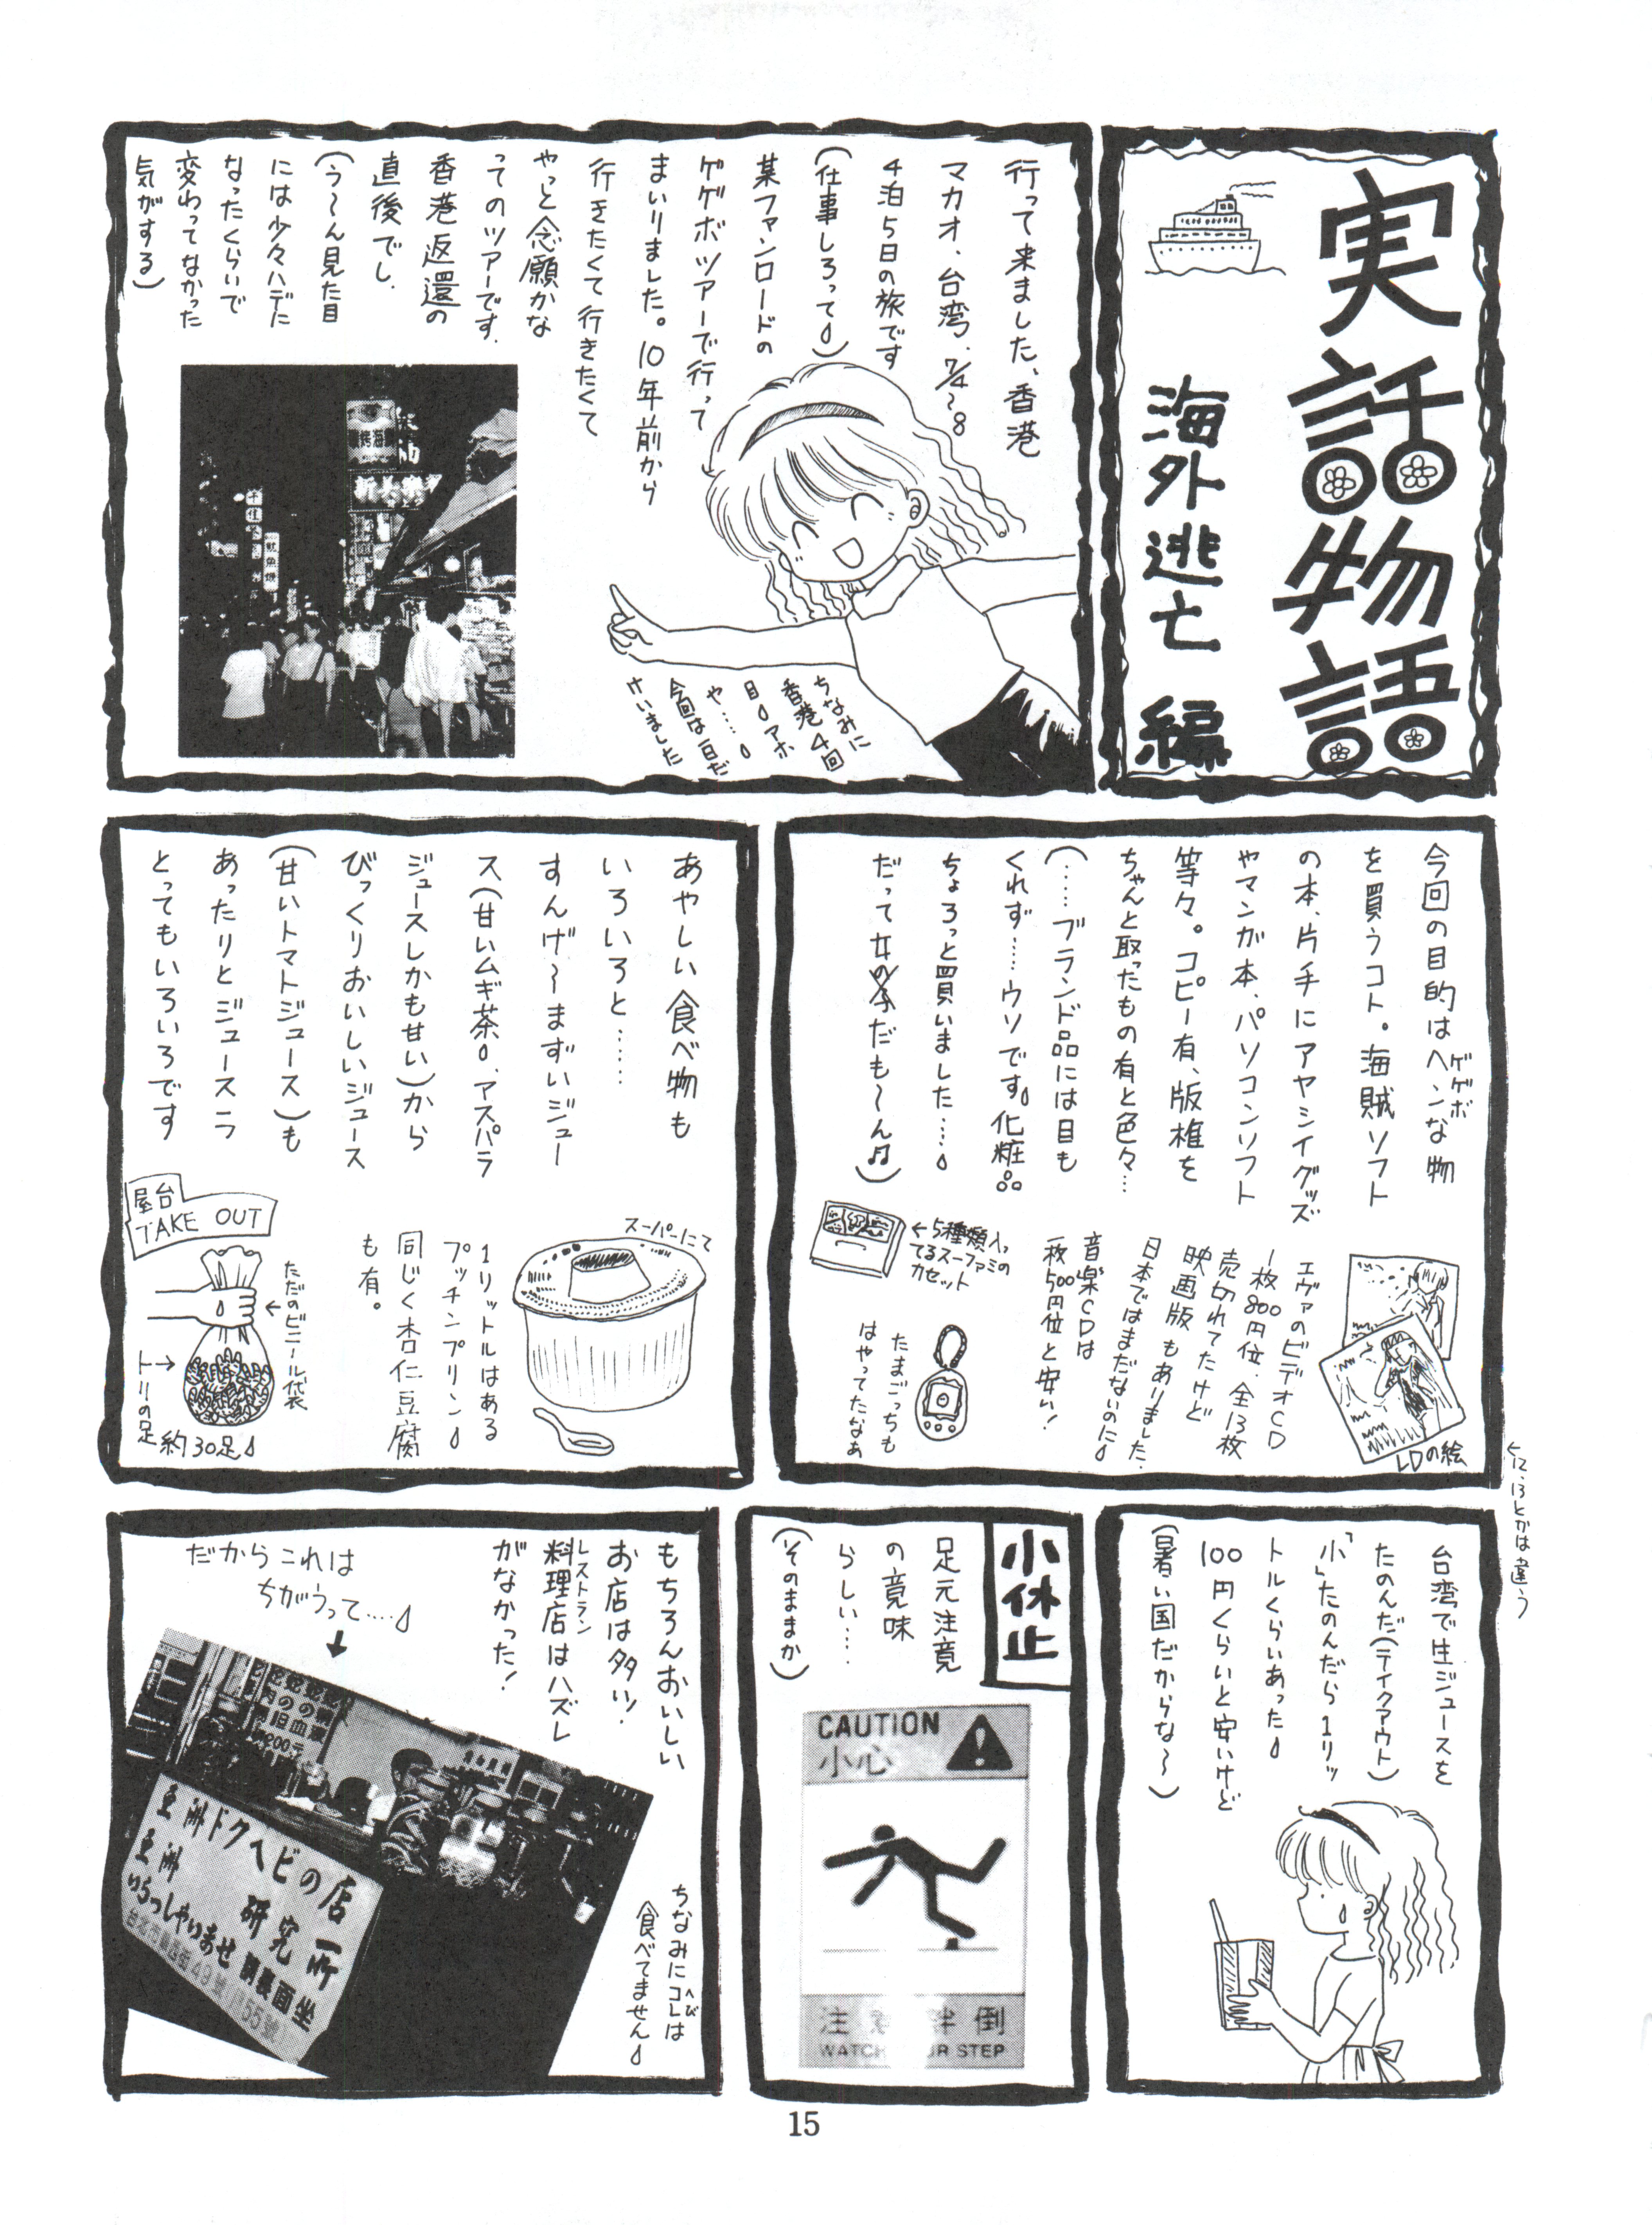 実話物語
海外逃亡 編
行って来ました、香港
マカオ、台湾、7/4〜8
4泊5日の旅です
(仕事しろって)
某ファンロードの
ゲゲボツアーで行って
まいりました。10年前から
行きたくて行きたくて
やっと念願かな
ってのツアーです。
香港返還の
直後でし、
(う〜ん見た目
には少々ハデに
なったくらいで
変わってなかった
気がする)
ちなみに
香港4回
目アホ
や……
今回は一日だ
けいました
今回の目的はヘンな物
ゲゲボ
を買うコト。海賊ソフト
の本、片手にアヤシイグッズ
やマンガ本、パソコンソフト
等々。コピー有、版権を
ちゃんと取ったもの有と色々…
(……ブランド品には目も
くれず……ウソです。化粧品
ちょろっと買いました……
だって女の子だも〜ん♫)
LDの絵
エヴァのビデオCD
一枚800円位、全13枚
売切れてたけど
映画版もありました。
日本ではまだないのに
音楽CDは
一枚500円位と安い!
←5種類入っ
てるスーファミの
カセット
たまごっちも
はやってたなぁ
←12、13とかは違う
あやしい食べ物も
いろいろと……
すんげ〜まずいジュー
ス(甘いムギ茶、アスパラ
ジュースしかも甘い)から
びっくりおいしいジュース
(甘いトマトジュース)も
あったりとジュースラ
とってもいろいろです
スーパーにて
1リットルはある
プッチンプリン
同じく杏仁豆腐
も有。
屋台
TAKE OUT
←ただのビニール袋
トリの足→
約30足
台湾で生ジュースを
たのんだ(テイクアウト)
「小」たのんだら1リッ
トルくらいあった
100円くらいと安いけど
(暑い国だからな〜)
小休止
足元注意
の意味
らしい……
(そのままか)
CAUTION
小心
注意絆倒
WATCH YOUR STEP
もちろんおいしい
お店は多い!
料理店はハズレ
レストラン
がなかった!
だからこれは
ちがうって……
↓
亜洲ドクヘビの店
亜洲 研究所
いらっしゃいませ 請裏面坐
ちなみにコレは
へび
食べてません
15